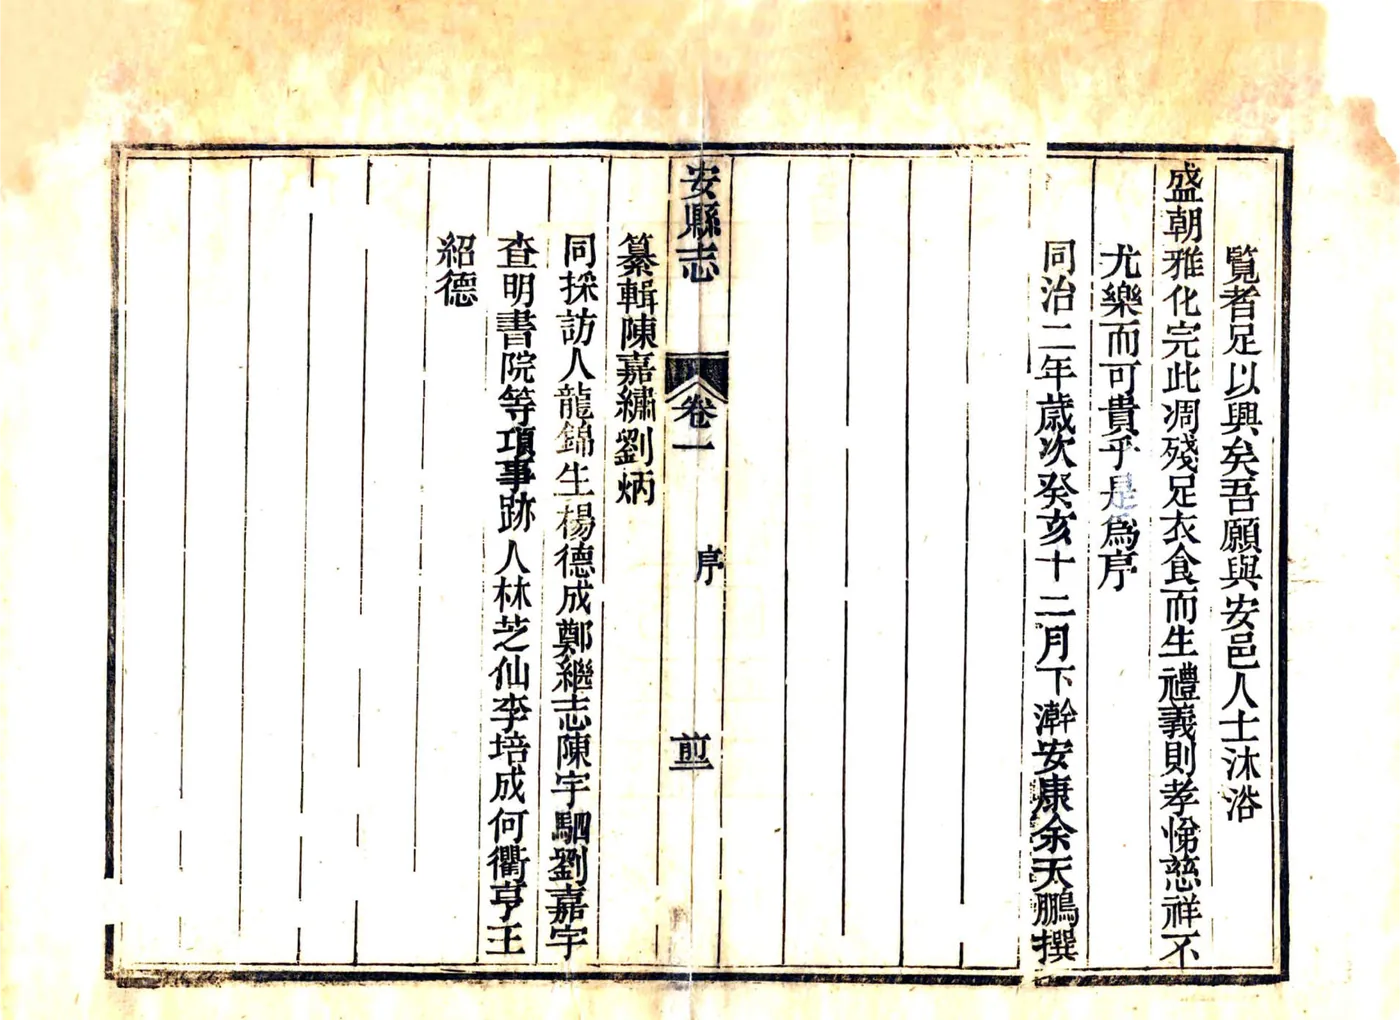 覽者足以興矣吾願與安邑人士沐浴
盛朝雅化完此凋殘足衣食而生禮義則孝悌慈祥不
尤樂而可貴乎是爲序
同治二年歲次癸亥十二月下澣安康余天鵬撰
安縣志
卷一
序
前二
纂輯陳嘉繡劉炳
同採訪人龍錦生楊德成鄭繼志陳宇駟劉嘉宇
查明書院等項事跡人林芝仙李培成何衢亨王
紹德